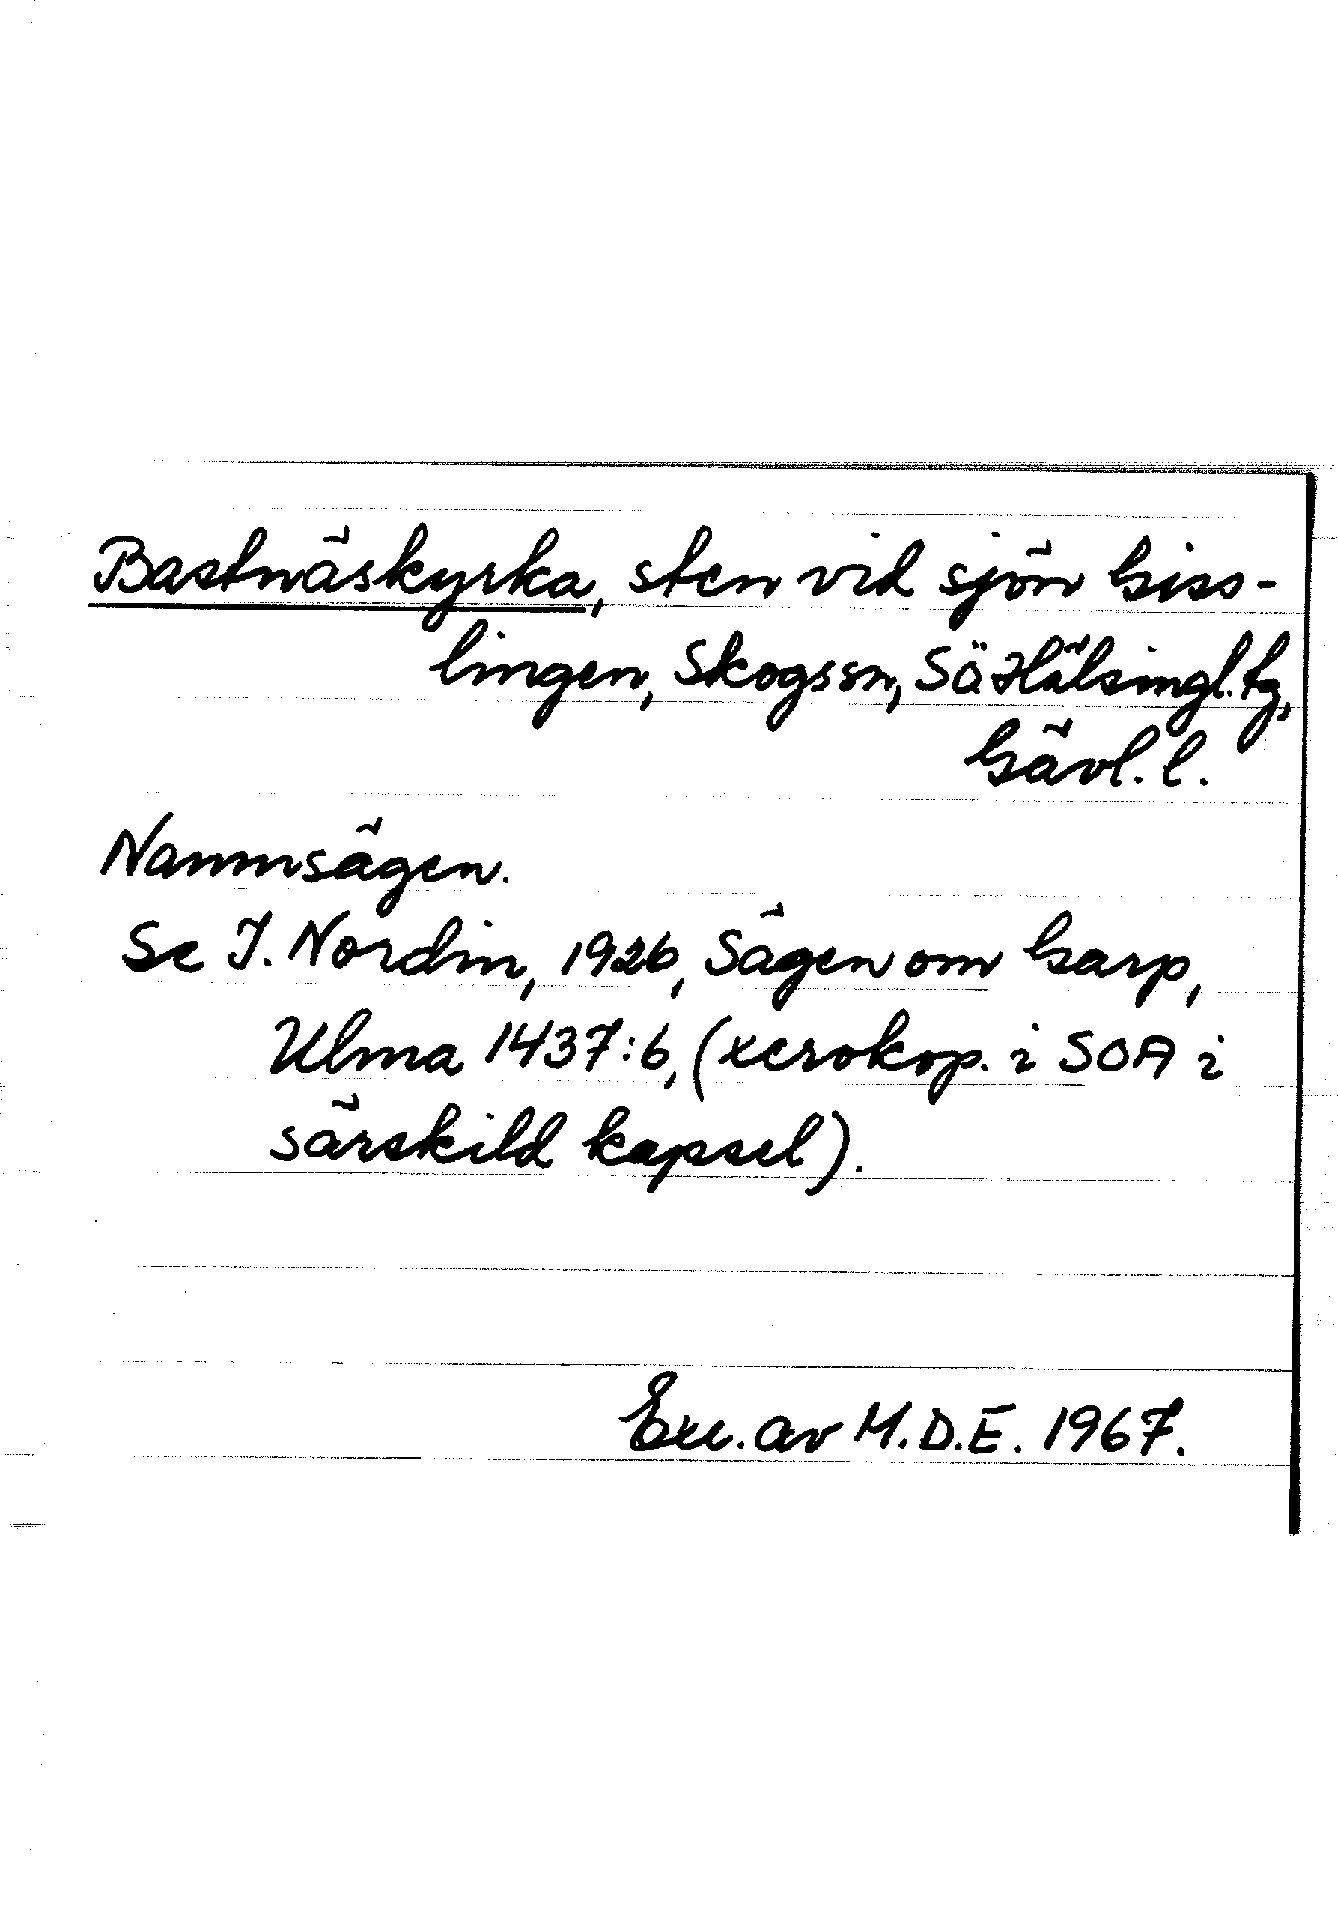 Bastnäskyrka, sten vid sjön Giss-
lingen, Skogssn, Sö. Hälsingl. fg,
Gävl. l.
Namnsägen.
Se J. Nordin, 1926, Sägen om Garp,
Ulma 1437:6, (xerokop. i SOA i
särskild kapsel).
Exc. av M.D.E. 1967.